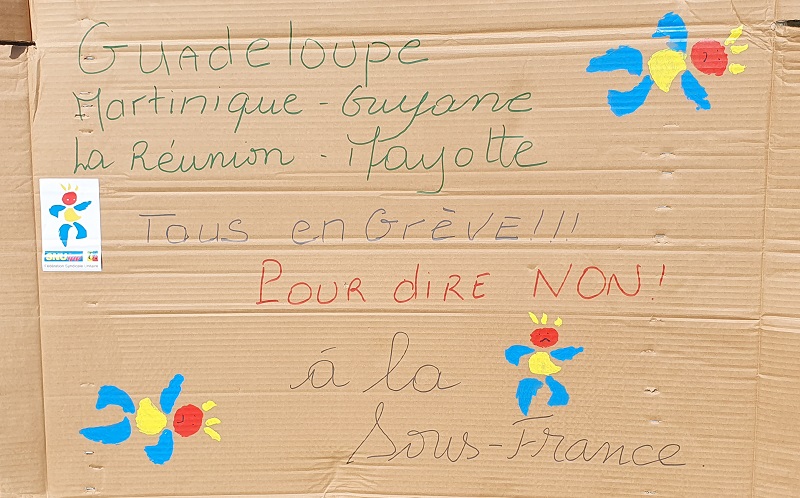 GUADELOUPE
Martinique - Guyane
La Réunion - Mayotte
Tous en GRÈVE!!!
POUR diRE NON!
à la
Sous-France